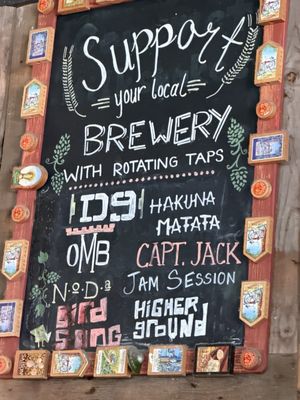 Support
your local
BREWERY
WITH ROTATING TAPS
D9 HAKUNA
MATATA
OMB CAPT. JACK
NoDa JAM SESSION
Bird Song HIGHER
Ground